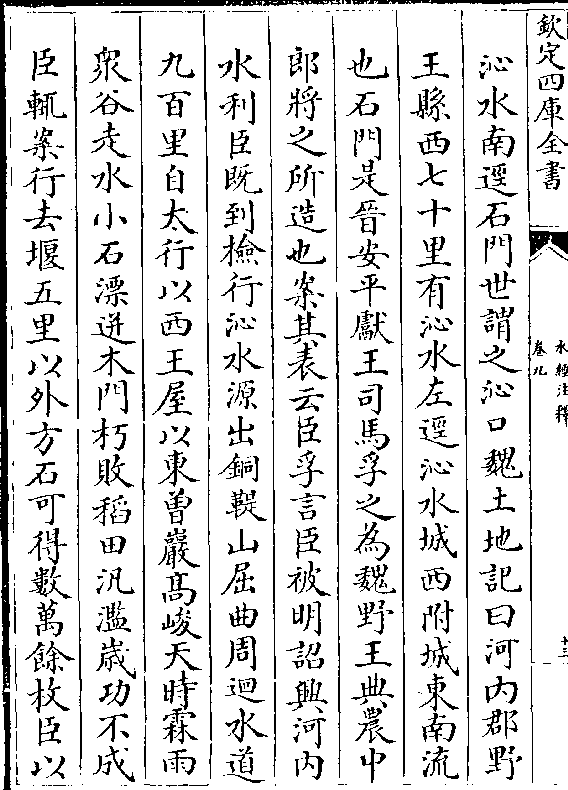 欽定四庫全書
水經注釋
卷九
十三
沁水南逕石門世謂之沁口魏土地記曰河内郡野
王縣西七十里有沁水左逕沁水城西附城東南流
也石門是晉安平獻王司馬孚之為魏野王典農中
郎將之所造也案其表云臣孚言臣被明詔興河内
水利臣既到檢行沁水源出銅鞮山屈曲周迴水道
九百里自太行以西王屋以東曾巖高峻天時霖雨
衆谷走水小石漂迸木門朽敗稻田汎濫嵗功不成
臣輒案行去堰五里以外方石可得數萬餘枚臣以